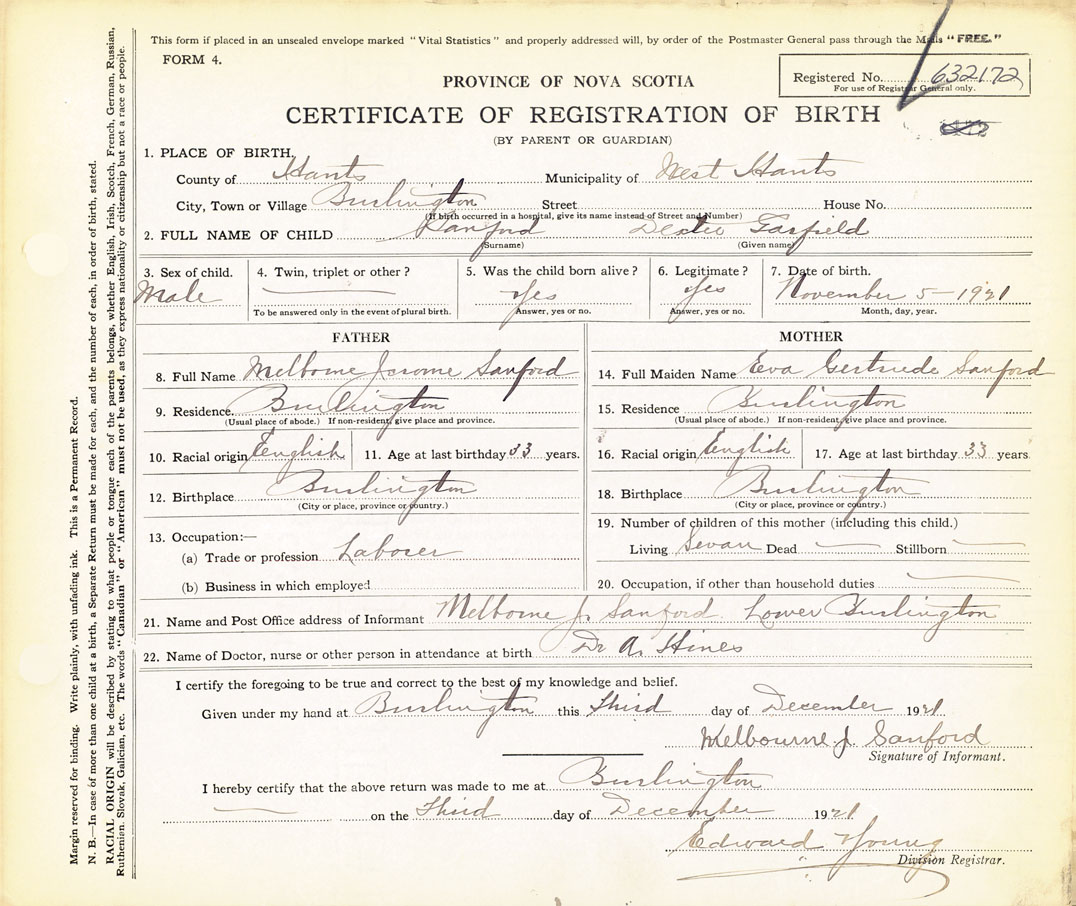 This form if placed in an unsealed envelope marked "Vital Statistics" and properly addressed will, by order of the Postmaster General pass through the Mails "FREE."
FORM 4.
Registered No. 632172
For use of Registrar General only.
PROVINCE OF NOVA SCOTIA
CERTIFICATE OF REGISTRATION OF BIRTH
(BY PARENT OR GUARDIAN)
1. PLACE OF BIRTH.
County of Hants Municipality of West Hants
City, Town or Village Burlington Street House No.
(If birth occurred in a hospital, give its name instead of Street and Number)
2. FULL NAME OF CHILD Sanford Dexter Garfield
(Surname) (Given name)
3. Sex of child. 4. Twin, triplet or other? 5. Was the child born alive? 6. Legitimate? 7. Date of birth.
Male Yes Yes November 5 - 1921
To be answered only in the event of plural birth. Answer, yes or no. Answer, yes or no. Month, day, year.
FATHER MOTHER
8. Full Name Melborne Jerome Sanford 14. Full Maiden Name Eva Gertrude Sanford
9. Residence. Burlington 15. Residence Burlington
(Usual place of abode.) If non-resident, give place and province. (Usual place of abode.) If non-resident, give place and province.
10. Racial origin English 11. Age at last birthday 33 years. 16. Racial origin English 17. Age at last birthday 33 years
12. Birthplace Burlington 18. Birthplace Burlington
(City or place, province or country.) (City or place, province or country.)
13. Occupation:— 19. Number of children of this mother (including this child.)
(a) Trade or profession Laborer Living Sevan Dead Stillborn
(b) Business in which employed 20. Occupation, if other than household duties
21. Name and Post Office address of Informant Melborne J. Sanford. Lower Burlington
22. Name of Doctor, nurse or other person in attendance at birth Dr A. Hines
I certify the foregoing to be true and correct to the best of my knowledge and belief.
Given under my hand at Burlington this Third day of December 1921
Melbourne J. Sanford
Signature of Informant.
I hereby certify that the above return was made to me at Burlington
on the Third day of December 1921
Edward Young
Division Registrar.
Margin reserved for binding. Write plainly, with unfading ink. This is a Permanent Record.
N. B.—In case of more than one child at a birth, a Separate Return must be made for each, and the number of each, in order of birth, stated.
RACIAL ORIGIN will be described by stating to what people or tongue each of the parents belongs, whether English, Irish, Scotch, French, German, Russian,
Ruthenian, Slovak, Galician, etc. The words "Canadian" or "American" must not be used, as they express nationality or citizenship but not a race or people.